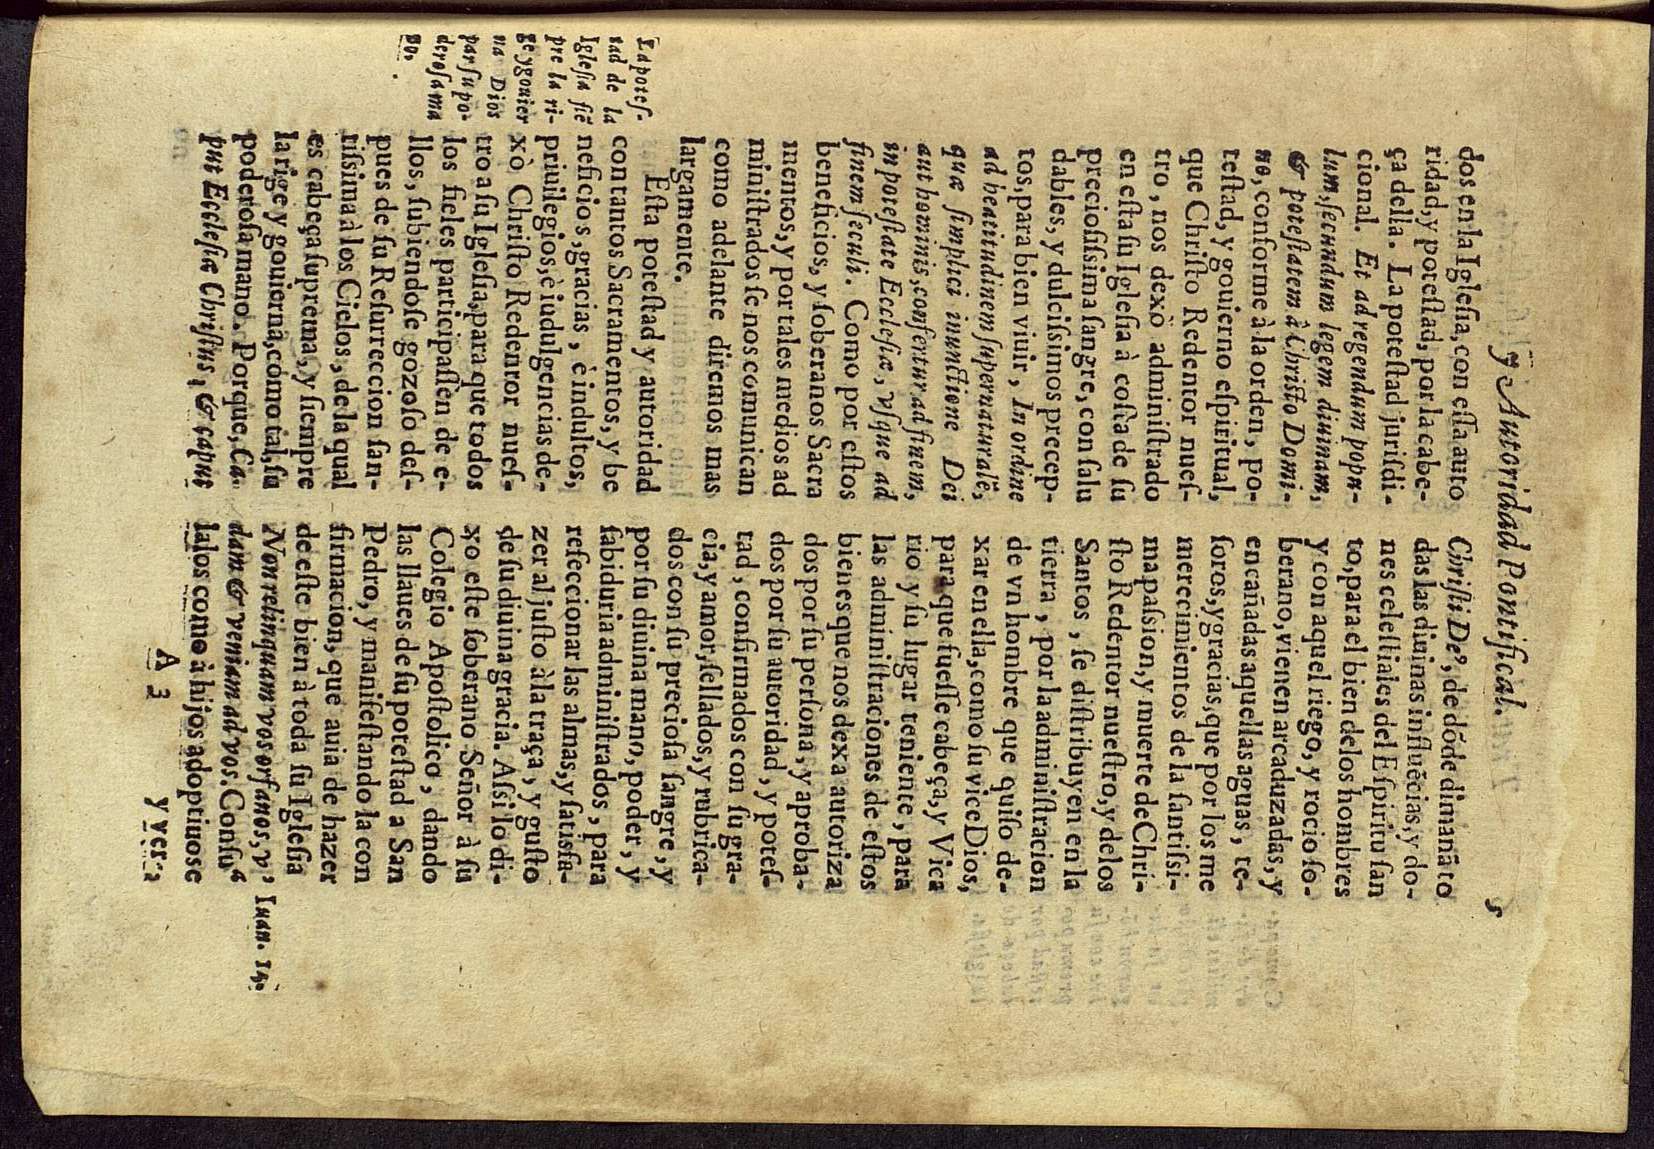 y Autoridad Pontifical. 5
dos en la Iglesia, con essa auto
ridad, y potestad, por la cabe-
ça della. La potestad jurisdi-
cional. Et ad regendum popu-
lum, secundum legem diuinam,
& potestatem à Christo Domi-
no, conforme à la orden, po-
testad, y gouierno espiritual,
que Christo Redentor nues-
tro, nos dexò administrado
en esta su Iglesia à costa de su
preciosissima sangre, con salu
dables, y dulcissimos precep-
tos, para bien viuir, In ordine
ad beatitudinem supernaturalē,
quæ simplici inunctione Dei
aut hominis, confertur ad finem,
in potestate Ecclesiæ, vsque ad
finem seculi. Como por estos
beneficios, y soberanos Sacra
mentos, y por tales medios ad
ministrados se nos comunican
como adelante diremos mas
largamente.
Esta potestad y autoridad
con tantos Sacramentos, y be
neficios, gracias, è indultos,
priuilegios, è indulgencias de-
xò Christo Redentor nues-
tro a su Iglesia, para que todos
los fieles participassen de e-
llos, subiendose gozoso des-
pues de su Resurreccion san-
tissima à los Cielos, de la qual
es cabeça suprema, y siempre
la rige y gouierna, como tal, su
poderosa mano. Porque, Ca-
put Ecclesiæ Christus, & caput
La potes-
tad de la
Iglesia siē
pre la ri-
ge y gouier
na Dios
par su pò-
derosa ma
no.
Christi Deꝰ, de dōde dimanā to
das las diuinas influēcias, y do-
nes celestiales del Espiritu san
to, para el bien de los hombres
y con aquel riego, y rocio so-
berano, vienen arcaduzadas, y
encañadas aquellas aguas, te-
soros, y gracias, que por los me
merecimientos de la santissi-
ma passion, y muerte de Chri-
sto Redentor nuestro, y de los
Santos, se distribuyen en la
tierra, por la administracion
de vn hombre que quiso de-
xar en ella, como su vice Dios,
para que fuesse cabeça, y Vica
rio y su lugar teniente, para
las administraciones de estos
bienes que nos dexa autoriza
dos por su persona, y aproba-
dos por su autoridad, y potes-
tad, confirmados con su gra-
cia, y amor, sellados, y rubrica-
dos con su preciosa sangre, y
por su diuina mano, poder, y
sabiduria administrados, para
refeccionar las almas, y satisfa-
zer al justo à la traça, y gusto
de su diuina gracia. Assi lo di-
xo este soberano Señor à su
Colegio Apostolico, dando
las llaues de su potestad a San
Pedro, y manifestando la con
firmacion, que auia de hazer
de este bien à toda su Iglesia
Non relinquam vos orfanos, v
dam & veniam ad vos. Consu
lalos como à hijos adoptiuos e
Iuan. 14.
A 3
y vera